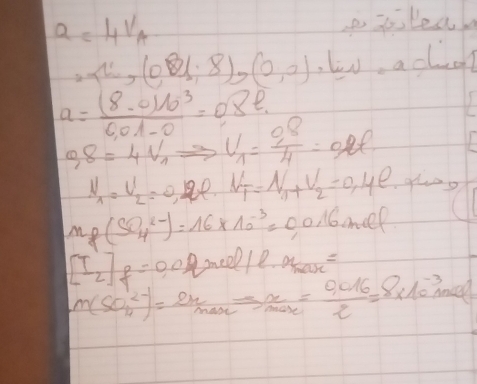 a = 4V₁
(0,01; 8), (0,0)
a = (8-0)10⁻³ / 0,01-0 = 0,8l.
0,8 = 4V₁ ⟹ V₁ = 0,8/4 = 0,2l
V₁ = V₂ = 0,2l. V_T = V₁ + V₂ = 0,4l.
n_f(SO₄²⁻) = 16 × 10⁻³ = 0,016 mol
[I₂]_f = 0,02 mol/l. x_max =
n(SO₄²⁻) = 2x_max ⟹ x_max = 0,016/2 = 8×10⁻³ mol